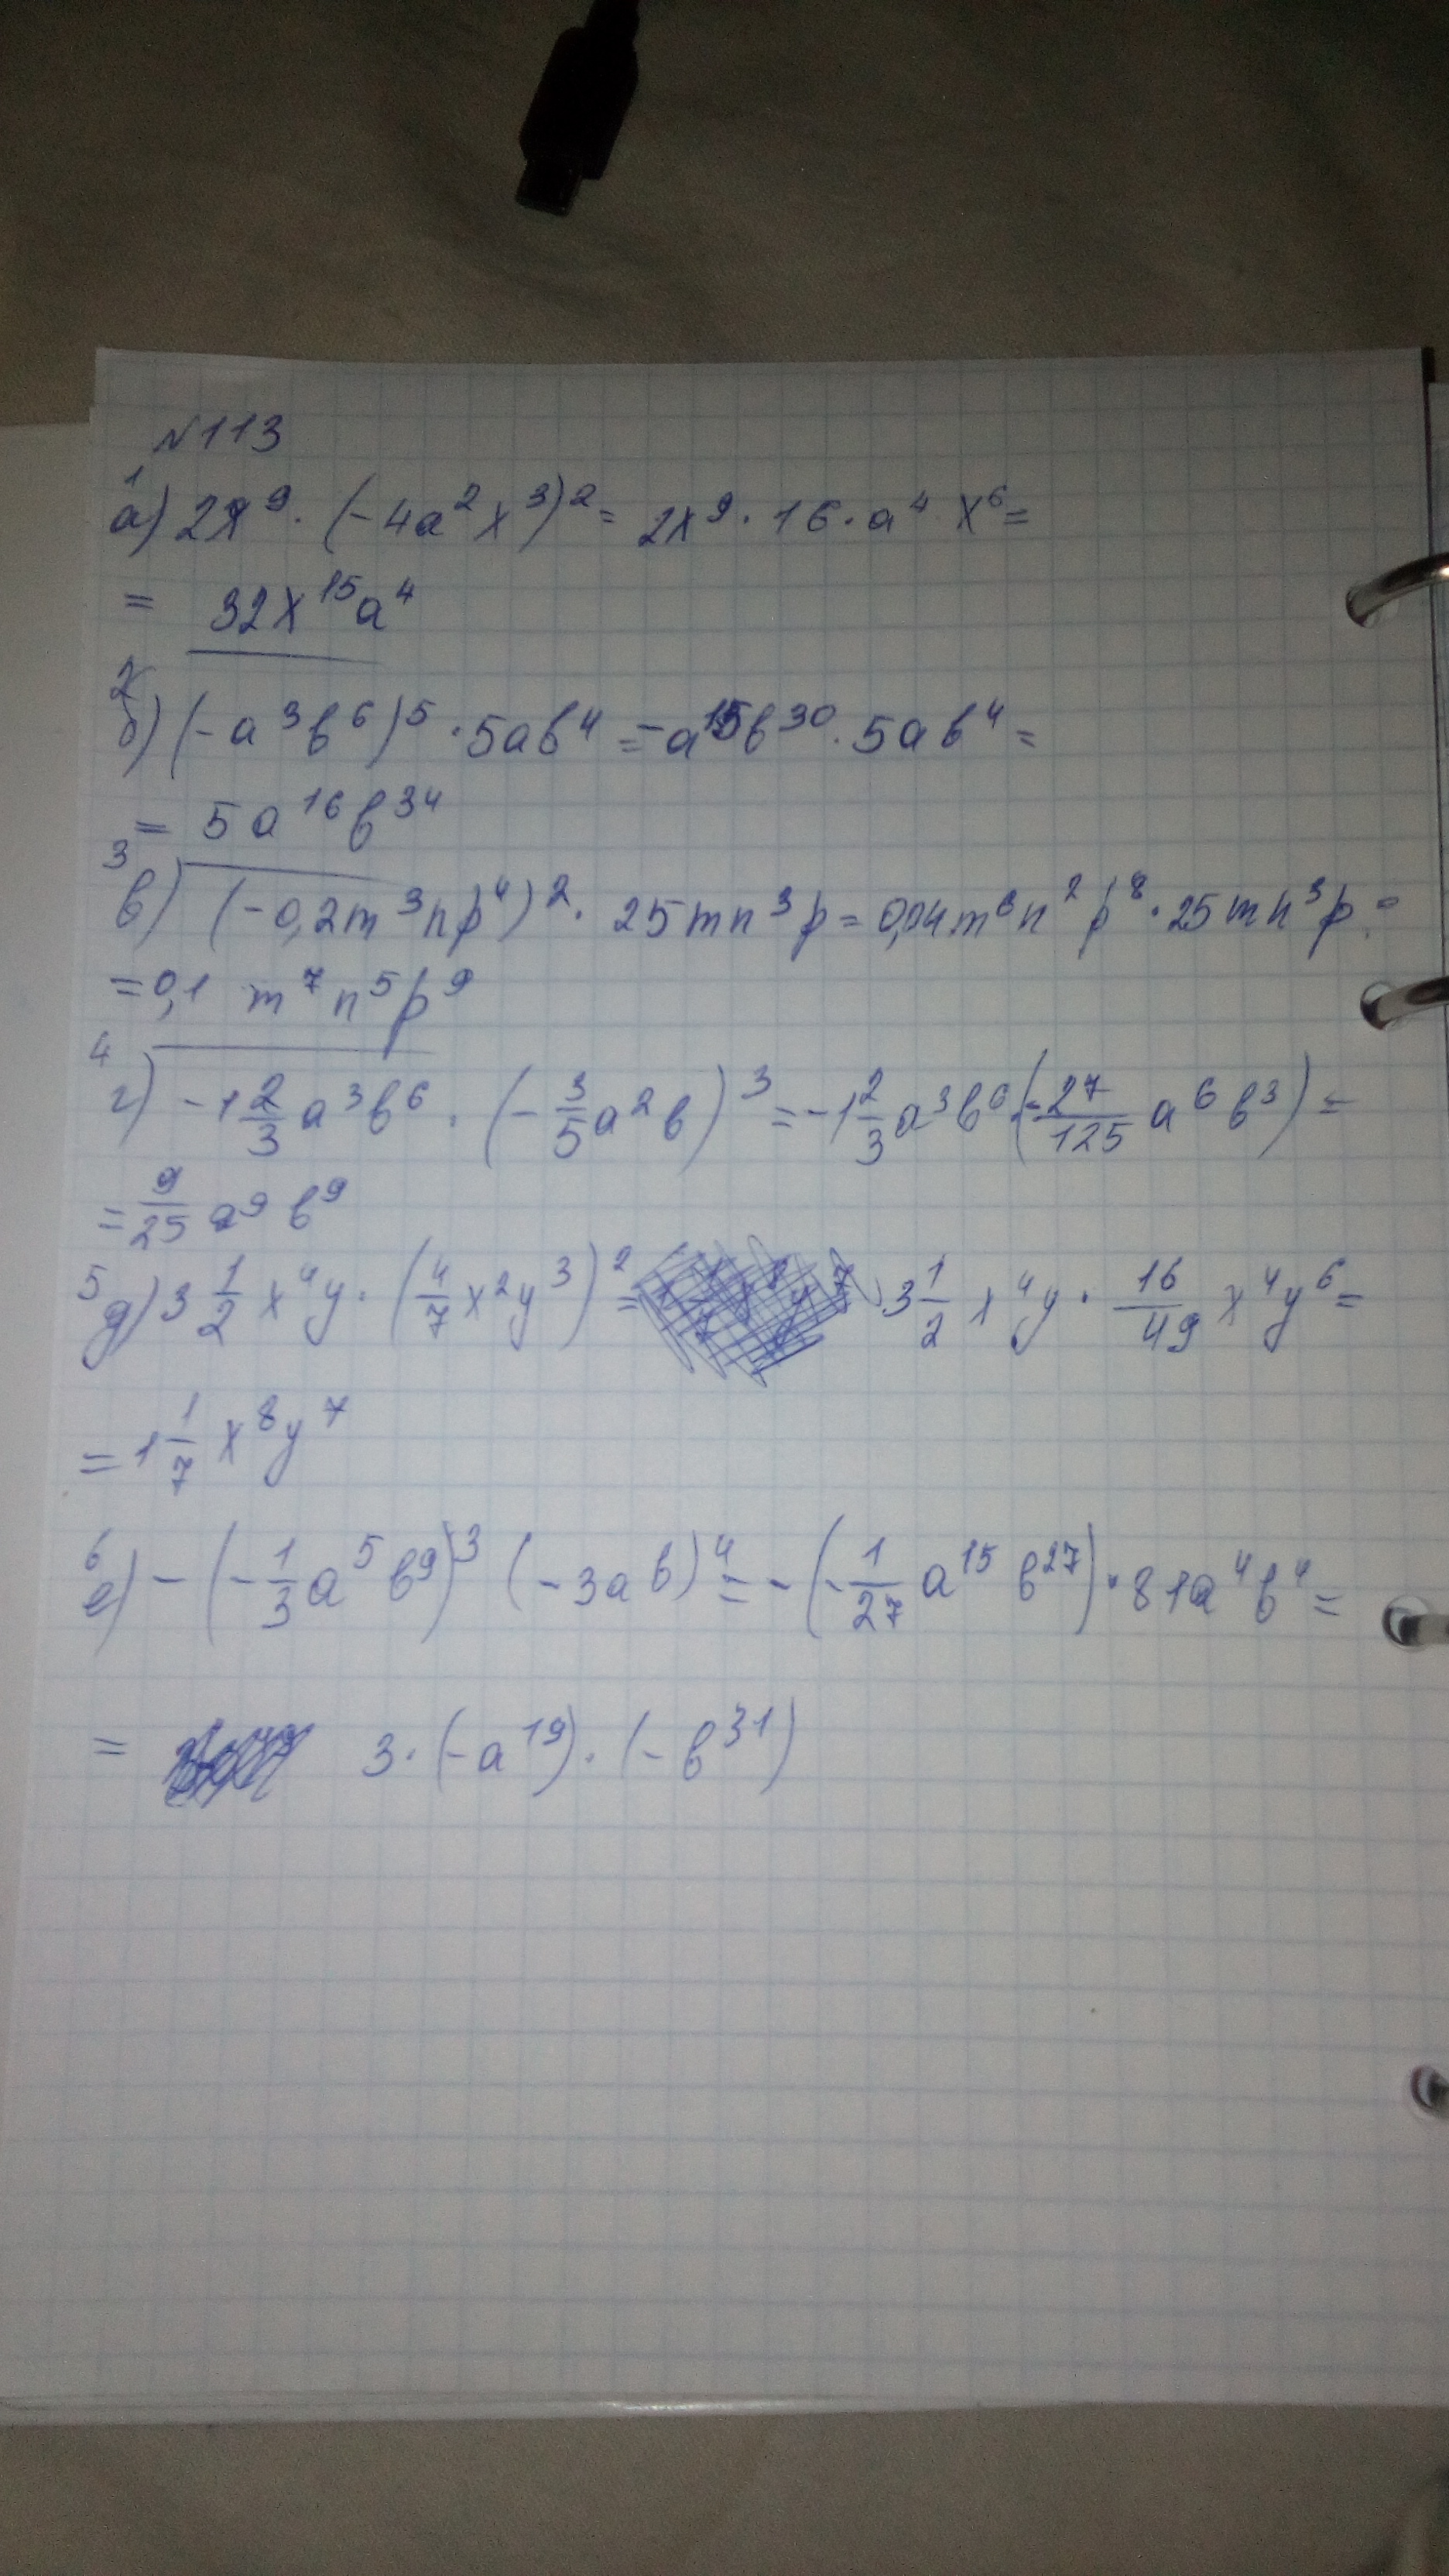 N113
1
а) 2x⁹ · (-4a²x³)² = 2x⁹ · 16 · a⁴ x⁶ =
= 32x¹⁵a⁴
2
б) (-a³b⁶)⁵ · 5ab⁴ = -a¹⁵b³⁰ · 5ab⁴ =
= 5a¹⁶b³⁴
3
в) (-0,2m³np⁴)² · 25mn³p = 0,04m⁶n²p⁸ · 25mn³p =
= 0,1 m⁷n⁵p⁹
4
г) -1 2/3 a³b⁶ · (-3/5 a²b)³ = -1 2/3 a³b⁶ · (-27/125 a⁶b³) =
= 9/25 a⁹b⁹
5
д) 3 1/2 x⁴y · (4/7 x²y³)² = 3 1/2 x⁴y · 16/49 x⁴y⁶ =
= 1 1/7 x⁸y⁷
6
е) -(-1/3 a⁵b⁹)³ (-3ab)⁴ = -(-1/27 a¹⁵b²⁷) · 81a⁴b⁴ =
= 3 · (-a¹⁹) · (-b³¹)